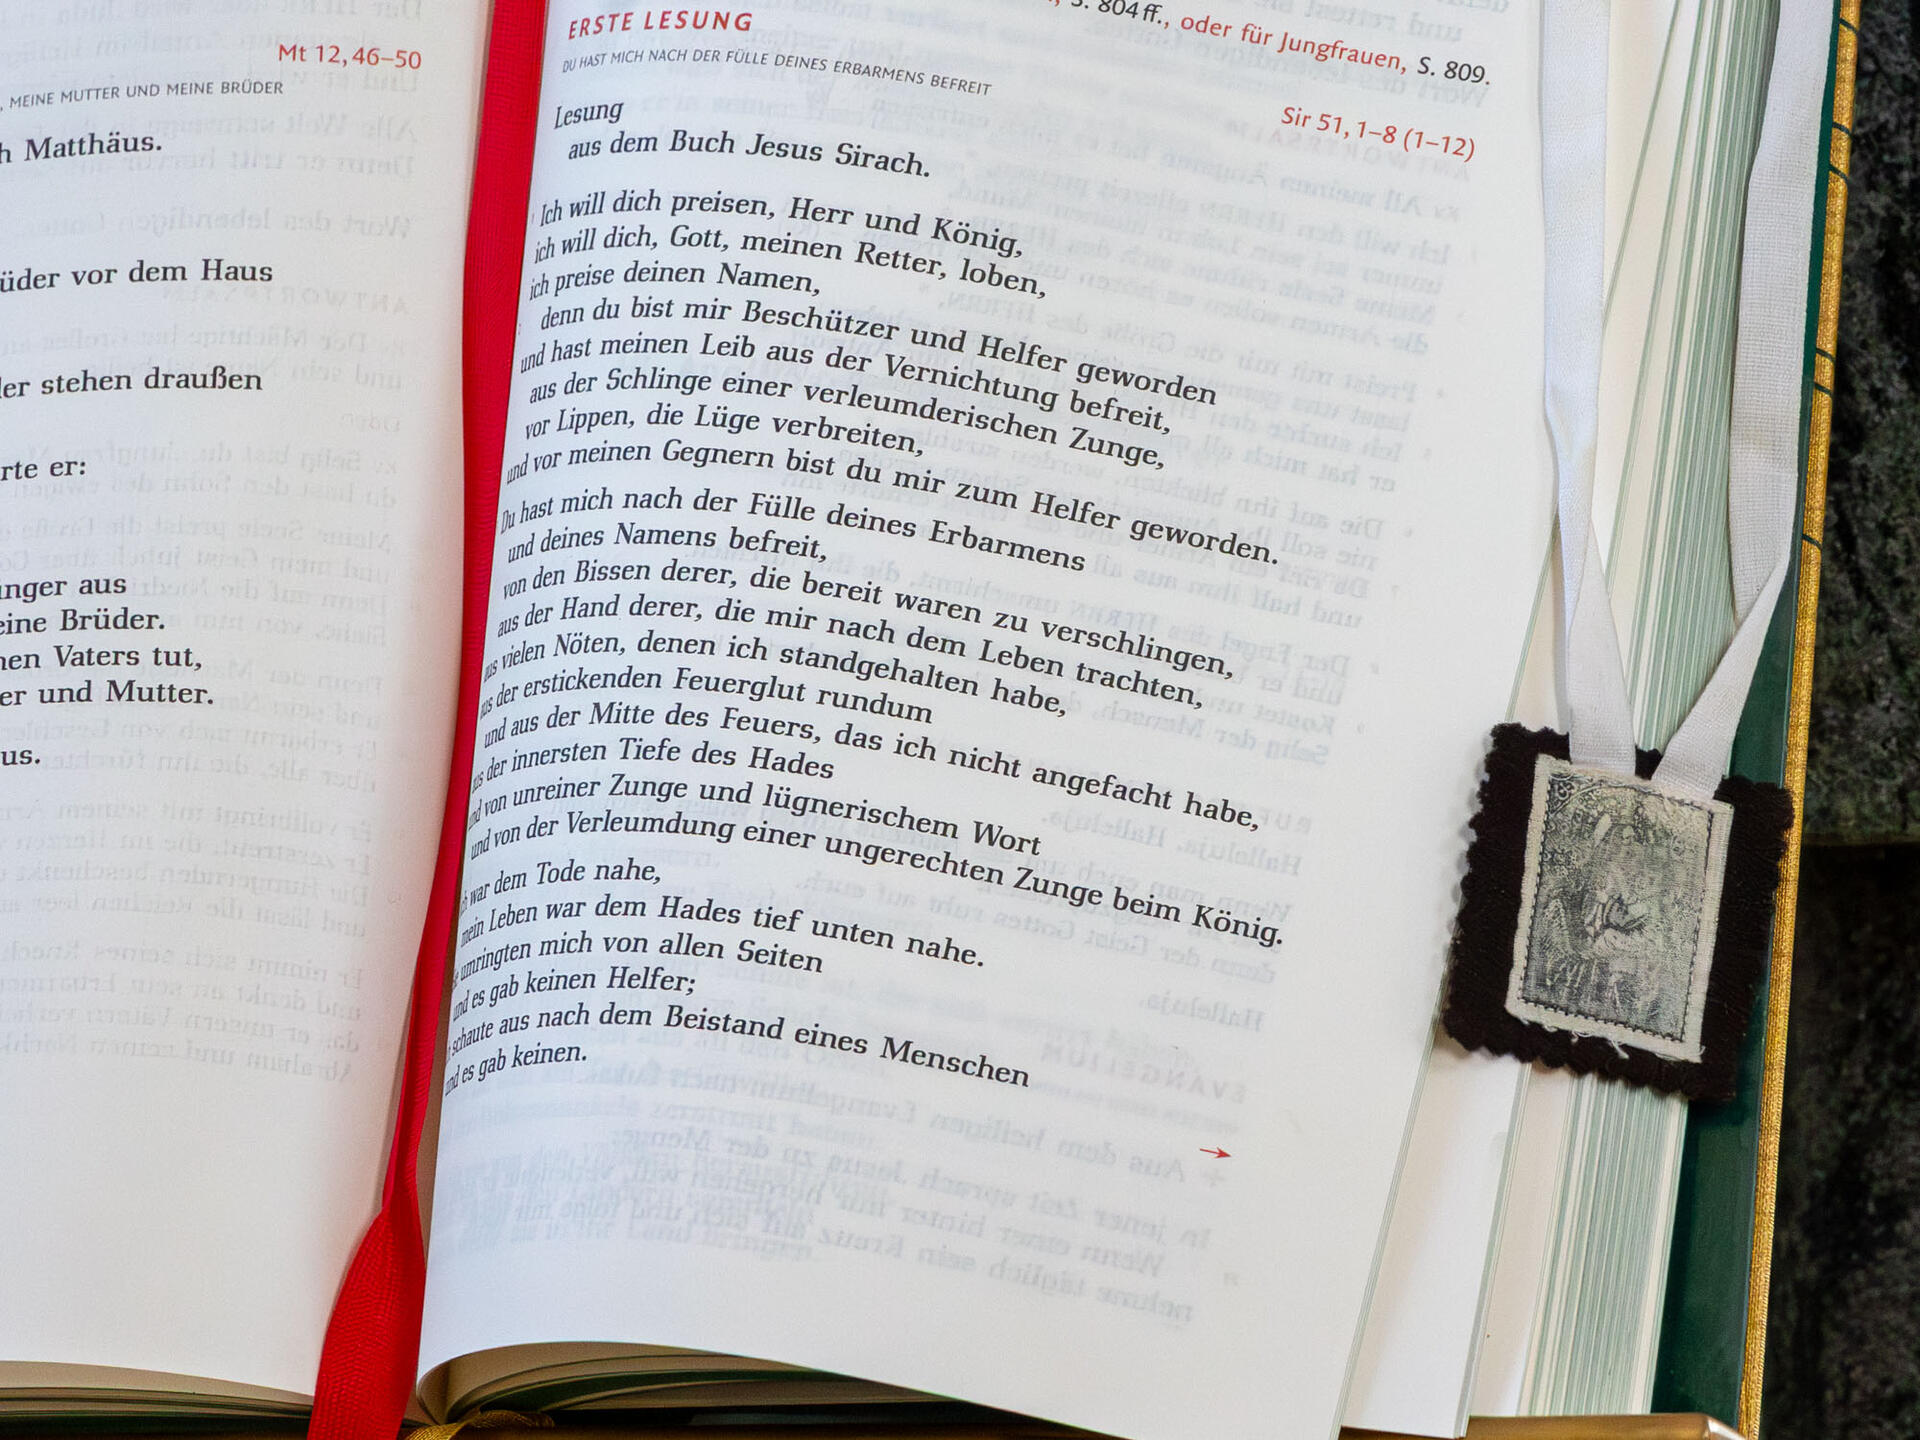 Mt 12, 46–50
, MEINE MUTTER UND MEINE BRÜDER
Matthäus.
vor dem Haus
stehen draußen
er:
aus
Brüder.
Vaters tut,
und Mutter.
S. 804 ff., oder für Jungfrauen, S. 809.
ERSTE LESUNG
DU HAST MICH NACH DER FÜLLE DEINES ERBARMENS BEFREIT
Sir 51, 1–8 (1–12)
Lesung
aus dem Buch Jesus Sirach.
Ich will dich preisen, Herr und König,
ich will dich, Gott, meinen Retter, loben,
ich preise deinen Namen,
denn du bist mir Beschützer und Helfer geworden
und hast meinen Leib aus der Vernichtung befreit,
aus der Schlinge einer verleumderischen Zunge,
vor Lippen, die Lüge verbreiten,
und vor meinen Gegnern bist du mir zum Helfer geworden.
Du hast mich nach der Fülle deines Erbarmens
und deines Namens befreit,
von den Bissen derer, die bereit waren zu verschlingen,
aus der Hand derer, die mir nach dem Leben trachten,
aus vielen Nöten, denen ich standgehalten habe,
aus der erstickenden Feuerglut rundum
und aus der Mitte des Feuers, das ich nicht angefacht habe,
aus der innersten Tiefe des Hades
und von unreiner Zunge und lügnerischem Wort
und von der Verleumdung einer ungerechten Zunge beim König.
war dem Tode nahe,
mein Leben war dem Hades tief unten nahe.
umringten mich von allen Seiten
und es gab keinen Helfer;
schaute aus nach dem Beistand eines Menschen
und es gab keinen.
→